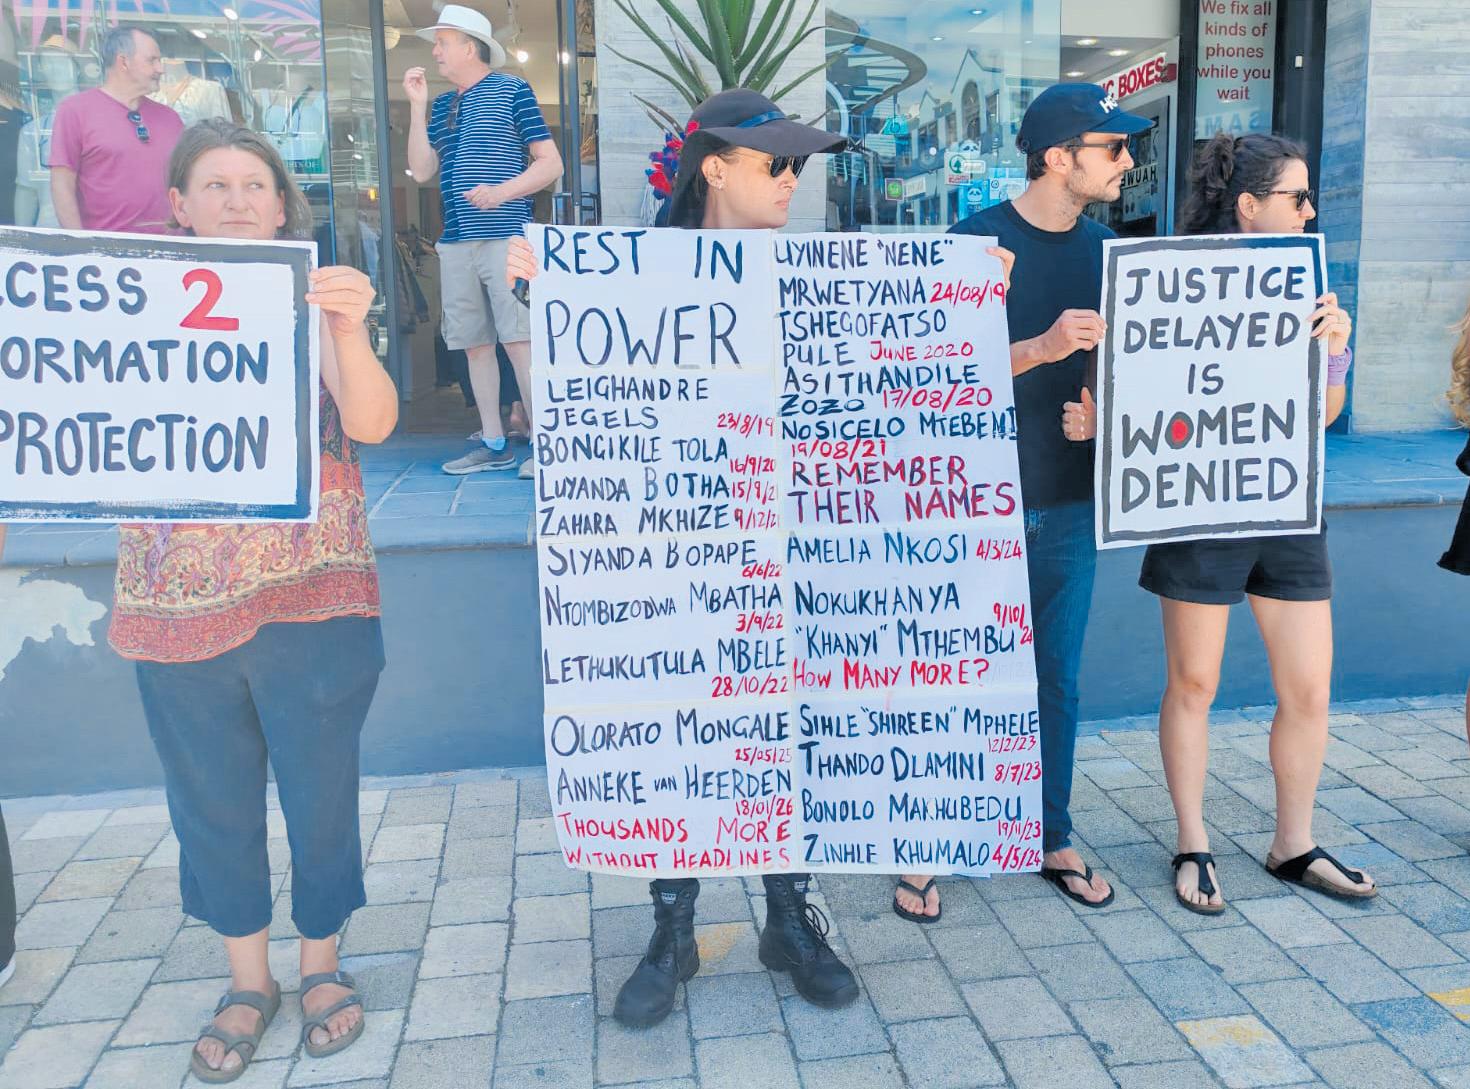 We fix all
kinds of
phones
while you
wait
BOXES
CESS 2
ORMATION
PROTECTION
REST IN
POWER
LEIGHANDRE
JEGELS 23/8/19
BONGIKILE TOLA
16/9/20
LUYANDA BOTHA 15/9/21
ZAHARA MKHIZE 9/12/21
SIYANDA BOPAPE
6/6/22
NTOMBIZODWA MBATHA
3/9/22
LETHUKUTULA MBELE
28/10/22
OLORATO MONGALE
25/05/25
ANNEKE VAN HEERDEN
18/01/26
THOUSANDS MORE
WITHOUT HEADLINES
UYINENE "NENE"
MRWETYANA 24/08/19
TSHEGOFATSO
PULE JUNE 2020
ASITHANDILE
ZOZO 17/08/20
NOSICELO MTEBENI
19/08/21
REMEMBER
THEIR NAMES
AMELIA NKOSI 4/3/24
NOKUKHANYA
"KHANYI" MTHEMBU 9/10/24
HOW MANY MORE?
SIHLE "SHIREEN" MPHELE
12/2/23
THANDO DLAMINI 8/7/23
BONOLO MAKHUBEDU
19/11/23
ZINHLE KHUMALO 4/5/24
JUSTICE
DELAYED
IS
WOMEN
DENIED